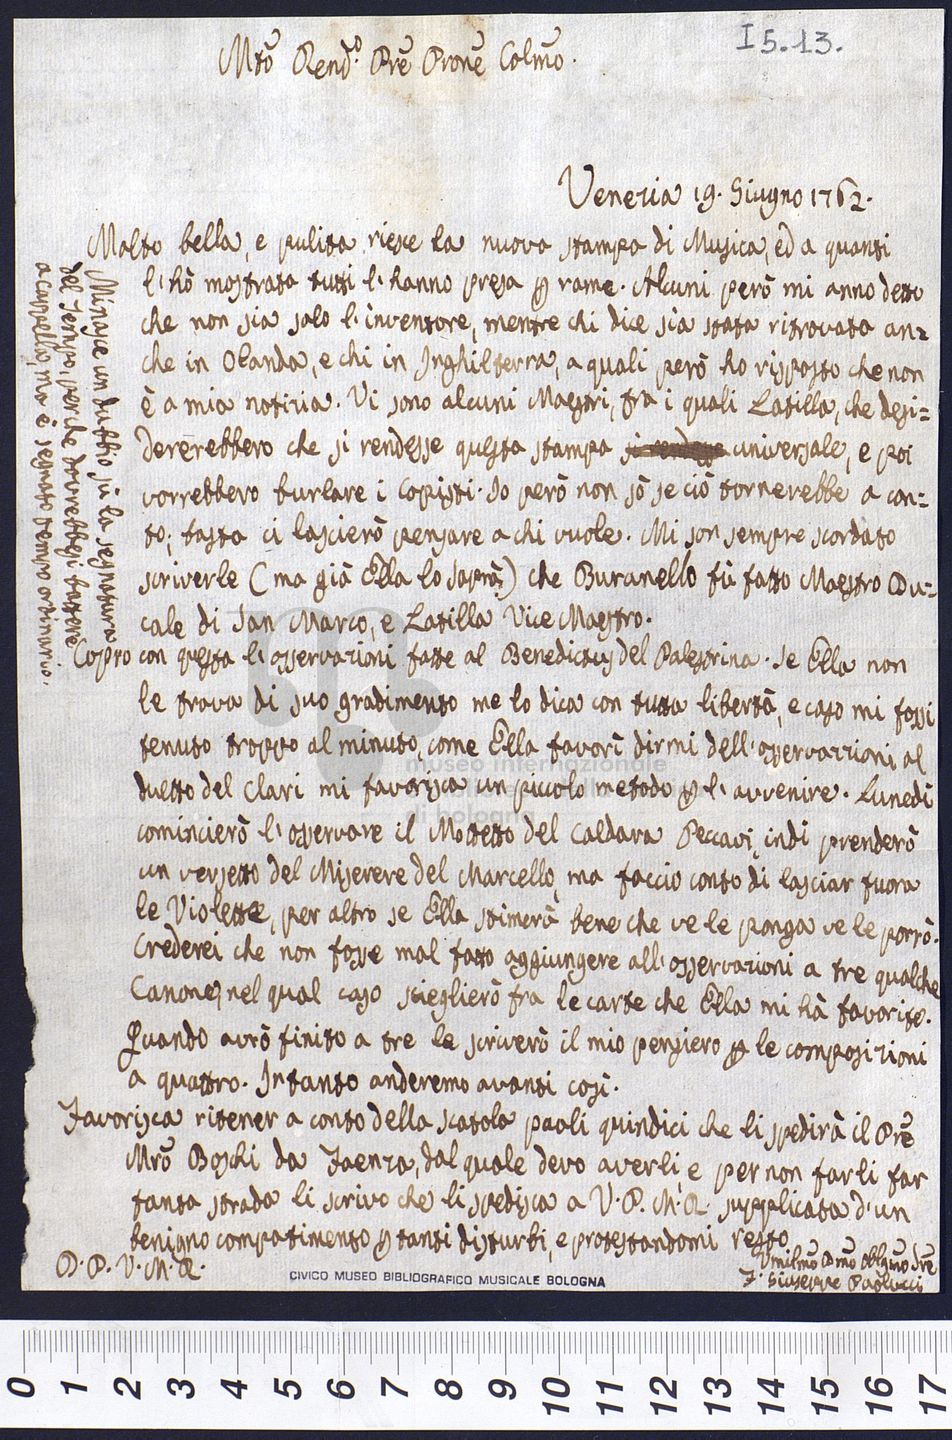 I 5.13.
Mtõ Rend.º Prẽ Pronẽ Colmõ.
Venezia 19. Giugno 1762.
Molto bella, e pulita riesce la nuova stampa di Musica, ed a quanti
l'hò mostrata tutti l'hanno presa p rame. Alcuni però mi anno detto
che non sia solo l'inventore, mentre chi dice sia stata ritrovata an=
che in Olanda, e chi in Inghilterra, a quali però ho risposto che non
è a mia notizia. Vi sono alcuni Maestri, fra i quali Latilla, che desi=
dererebbero che si rendesse questa stampa si rendesse universale, e poi
vorrebbero burlare i Copisti. Io però non sò se ciò tornerebbe a con=
to; basta ci lascierò pensare a chi vuole. Mi son sempre scordato
scriverle (ma già Ella lo saprà) che Buranello fù fatto Maestro Du=
cale di San Marco, e Latilla Vice Maestro.
Copro con questa l'osservazioni fatte al Benedictus del Palestrina. Se Ella non
le trova di suo gradimento me lo dica con tutta libertà, e caso mi fossi
tenuto troppo al minuto, come Ella favorì dirmi dell'osservazioni al
duetto del Clari mi favorisca un piccolo metodo p l'avvenire. Lunedì
comincierò l'osservare il Mottetto del Caldara Peccavi, indi prenderò
un versetto del Miserere del Marcello, ma faccio conto di lasciar fuora
le Violette, per altro se Ella stimerà bene che ve le ponga ve le porrò.
Crederei che non fosse mal fatto aggiungere all'osservazioni a tre qualche
Canone, nel qual caso sceglierò fra le carte che Ella mi hà favorite.
Quando avrò finito a tre le scriverò il mio pensiero p le composizioni
a quattro. Intanto anderemo avanti così.
Favorisca ritener a conto della scatola paoli quindici che li spedirà il Prẽ
Mrõ Boschi da Faenza, dal quale devo averli, e per non farli far
tanta strada li scrivo che li spedisca a V. P. M. R. supplicata d'un
benigno compatimento p tanti disturbi, e protestandomi resto
D. P. V. M. R.
Umilmõ Domõ Oblgmõ Sre
F. Giuseppe Paolucci
Mi nasce un dubbio sù la segnatura
del Tempo, perche dovrebbesi battere
a cappella, ma è segnato tempo ordinario.
museo internazionale
di bologna
CIVICO MUSEO BIBLIOGRAFICO MUSICALE BOLOGNA
0 1 2 3 4 5 6 7 8 9 10 11 12 13 14 15 16 17